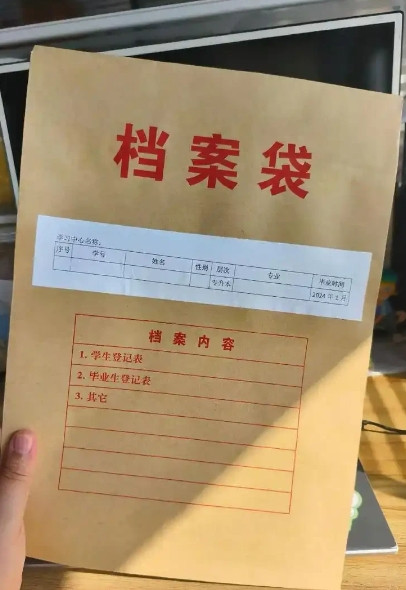 档案袋
学习中心名称：
序号 学号 姓名 性别 层次 专业 毕业时间
专升本 2024 年 1 月
档案内容
1. 学生登记表
2. 毕业生登记表
3. 其它